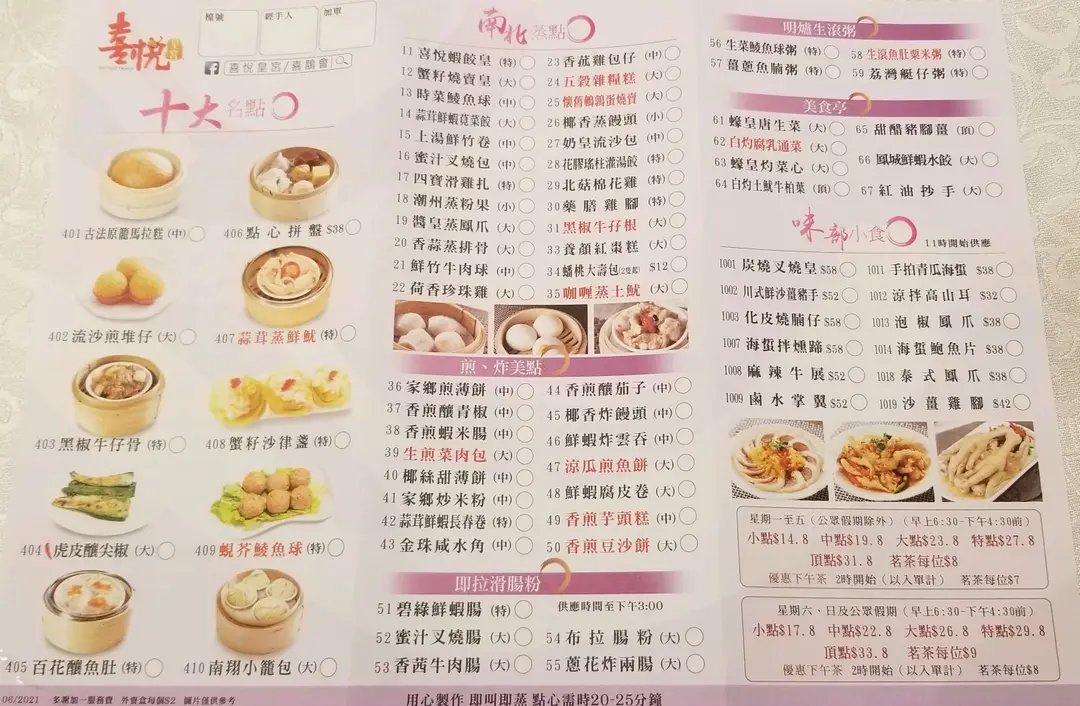 喜悅
檯號
經手人
加單
喜悅皇宮/喜鵲會
十大名點
401 古法原籠馬拉糕 (中)
406 點心拼盤 $38
402 流沙煎堆仔 (大)
407 蒜茸蒸鮮魷 (特)
403 黑椒牛仔骨 (特)
408 蟹籽沙律盞 (特)
404 虎皮釀尖椒 (大)
409 蜆芥鯪魚球 (特)
405 百花釀魚肚 (特)
410 南翔小籠包 (大)
南北蒸點
11 喜悅蝦餃皇 (特)
12 蟹籽燒賣皇 (大)
13 時菜鯪魚球 (中)
14 蒜茸鮮蝦莧菜餃 (大)
15 上湯鮮竹卷 (中)
16 蜜汁叉燒包 (中)
17 四寶滑雞扎 (特)
18 潮州蒸粉果 (小)
19 醬皇蒸鳳爪 (大)
20 香蒜蒸排骨 (大)
21 鮮竹牛肉球 (中)
22 荷香珍珠雞 (大)
23 香菰雞包仔 (中)
24 五穀雜糧糕 (大)
25 懷舊鵪鶉蛋燒賣 (大)
26 椰香蒸饅頭 (小)
27 奶皇流沙包 (中)
28 花膠瑤柱灌湯餃 (特)
29 北菇棉花雞 (特)
30 藥膳雞腳 (特)
31 黑椒牛孖根 (大)
33 養顏紅棗糕 (大)
34 蟠桃大壽包(2隻起) $12
35 咖喱蒸土魷 (大)
煎、炸美點
36 家鄉煎薄餅 (中)
37 香煎釀青椒 (中)
38 香煎蝦米腸 (中)
39 生煎菜肉包 (大)
40 椰絲甜薄餅 (中)
41 家鄉炒米粉 (中)
42 蒜茸鮮蝦長春卷 (特)
43 金珠咸水角 (中)
44 香煎釀茄子 (中)
45 椰香炸饅頭 (中)
46 鮮蝦炸雲吞 (中)
47 涼瓜煎魚餅 (大)
48 鮮蝦腐皮卷 (大)
49 香煎芋頭糕 (中)
50 香煎豆沙餅 (大)
即拉滑腸粉
51 碧綠鮮蝦腸 (特)
52 蜜汁叉燒腸 (大)
53 香茜牛肉腸 (大)
供應時間至下午3:00
54 布拉腸粉 (大)
55 蔥花炸兩腸 (大)
明爐生滾粥
56 生菜鯪魚球粥 (特)
57 薑蔥魚腩粥 (特)
58 生滾魚肚粟米粥 (特)
59 荔灣艇仔粥 (特)
美食亭
61 蠔皇唐生菜 (大)
62 白灼腐乳通菜 (大)
63 蠔皇灼菜心 (大)
64 白灼土魷牛柏葉 (頂)
65 甜醋豬腳薑 (頂)
66 鳳城鮮蝦水餃 (大)
67 紅油抄手 (大)
味部小食
11時開始供應
1001 炭燒叉燒皇 $58
1002 川式鮮沙薑豬手 $52
1003 化皮燒腩仔 $58
1007 海蜇拌燻蹄 $58
1008 麻辣牛展 $52
1009 鹵水掌翼 $52
1011 手拍青瓜海蜇 $38
1012 涼拌高山耳 $32
1013 泡椒鳳爪 $38
1014 海蜇鮑魚片 $38
1018 泰式鳳爪 $38
1019 沙薑雞腳 $42
星期一至五 (公眾假期除外) (早上6:30-下午4:30前)
小點$14.8 中點$19.8 大點$23.8 特點$27.8
頂點$31.8 茗茶每位$8
優惠下午茶 2時開始 (以入單計) 茗茶每位$7
星期六、日及公眾假期 (早上6:30-下午4:30前)
小點$17.8 中點$22.8 大點$26.8 特點$29.8
頂點$33.8 茗茶每位$9
優惠下午茶 2時開始 (以入單計) 茗茶每位$8
06/2021 多謝加一服務費 外賣盒每個$2 圖片僅供參考
用心製作 即叫即蒸 點心需時20-25分鐘